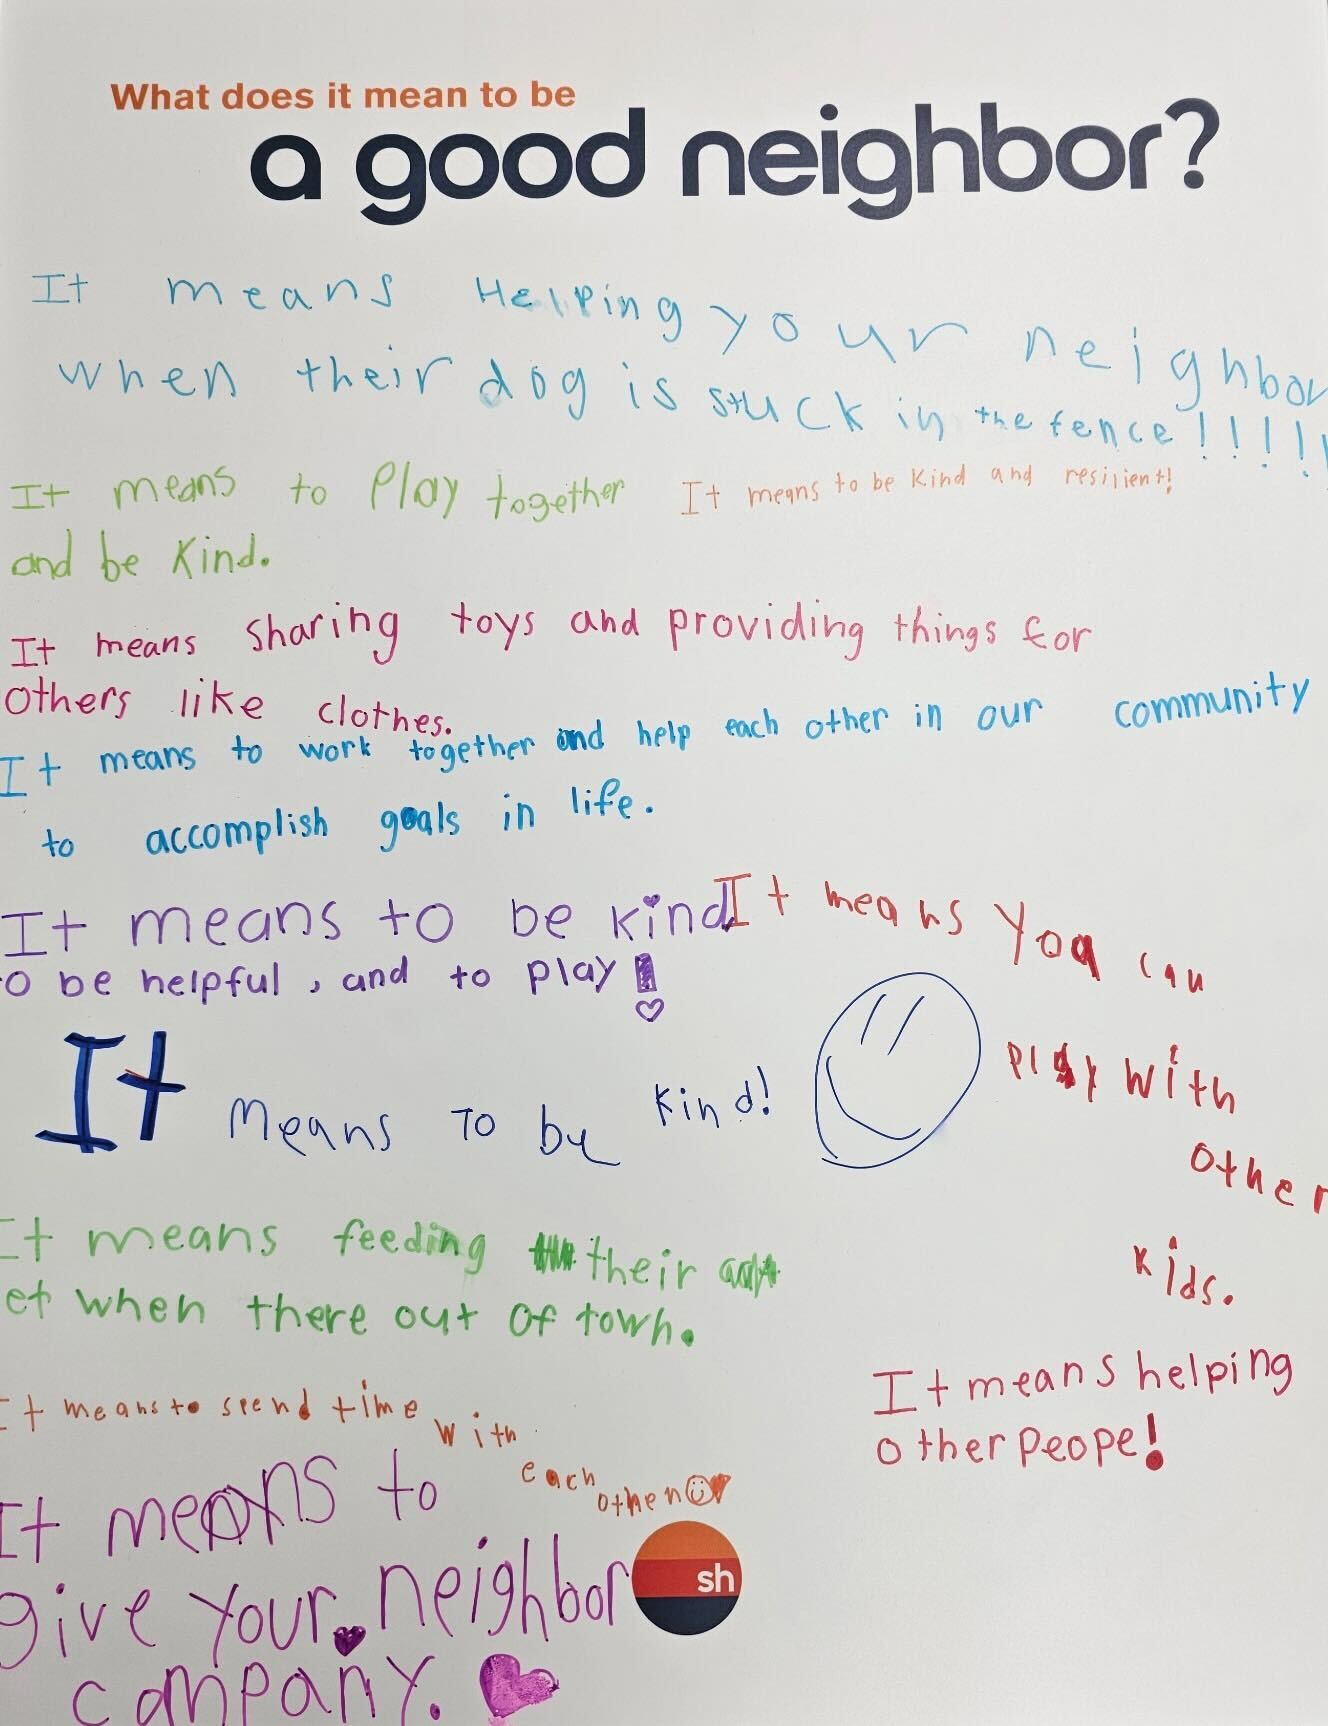 What does it mean to be
a good neighbor?
It means Helping your neighbor
when their dog is stuck in the fence!!!!!
It means to Play together
and be Kind.
It means to be Kind and resilient!
It means sharing toys and providing things for
others like clothes.
It means to work together and help each other in our community
to accomplish goals in life.
It means to be kind
o be helpful, and to play!
It means you can
play with
other
kids.
It means To be kind!
It means feeding their
et when there out of town.
It means to spend time
with
each
other
It means helping
other peope!
It means to
give your neighbor
company.
sh